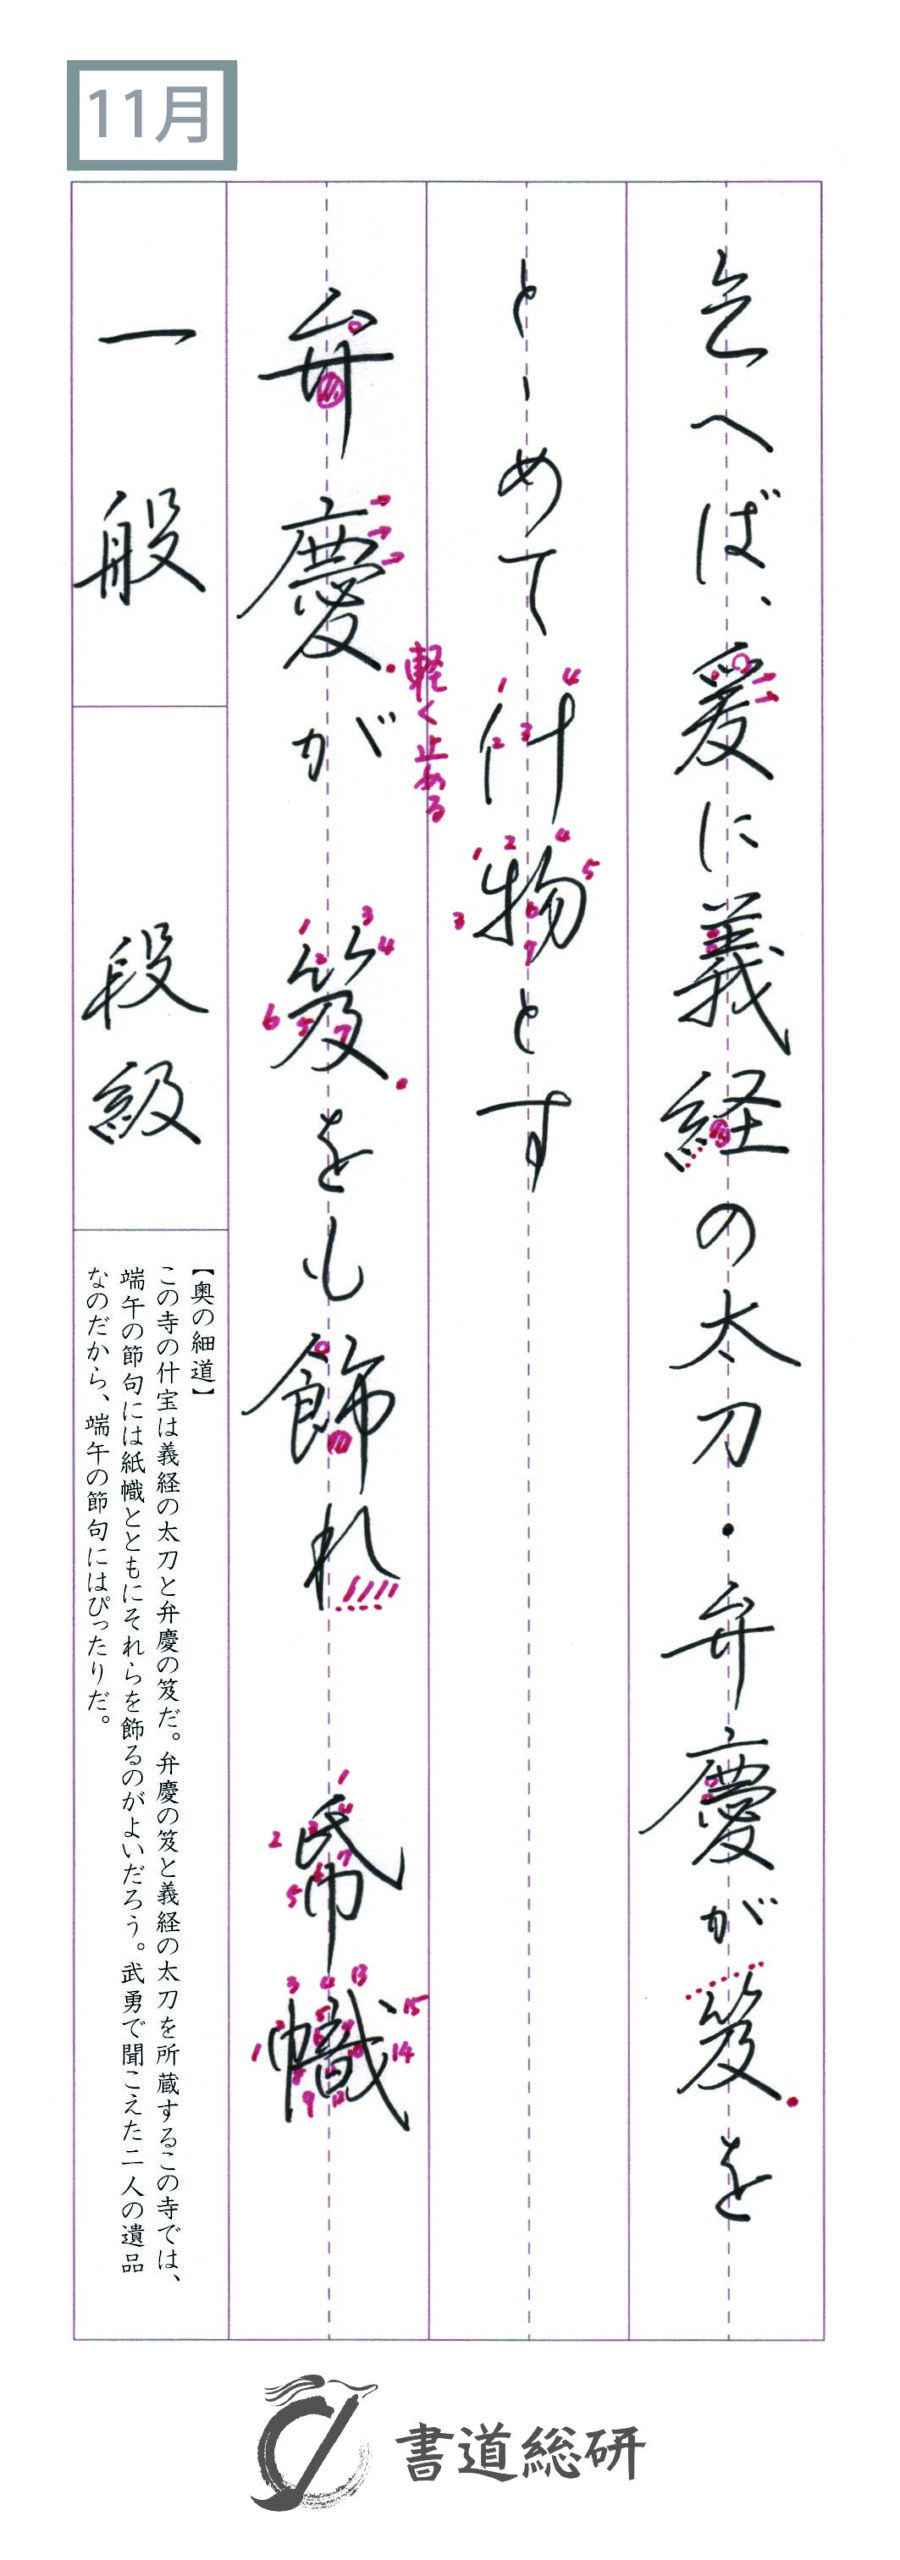 11月
乞へば、爰に義経の太刀・弁慶が笈を
とゝめて什物とす
弁慶が 笈をも飾れ 帋幟
軽く止める
一般 段級
【奥の細道】
この寺の什宝は義経の太刀と弁慶の笈だ。弁慶の笈と義経の太刀を所蔵するこの寺では、
端午の節句には紙幟とともにそれらを飾るのがよいだろう。武勇で聞こえた二人の遺品
なのだから、端午の節句にはぴったりだ。
書道総研